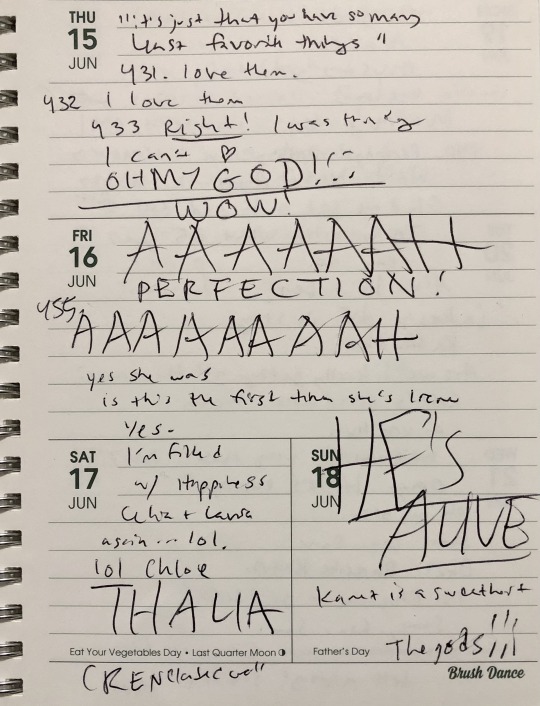 THU
15
JUN
"it's just that you have so many
least favorite things"
431. love them.
432 I love them
433 Right! I was
I can't ♡
OH MY GOD!!!
WOW!
FRI
16
JUN
AAAAAAAH
PERFECTION!
455.
AAAAAAAAH
yes she was
is this the first time she's Irene
Yes.
SAT
17
JUN
I'm filled
w/ Happiness
Celia + Laura
again... lol.
lol Chloe
THALIA
Eat Your Vegetables Day • Last Quarter Moon
SUN
18
JUN
HE'S
ALIVE
is a sweetheart
The gods!!!
Father's Day
Brush Dance